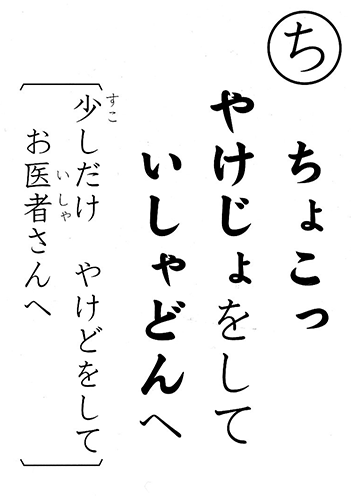 ち
ちょこっ
やけじょをして
いしゃどんへ
少しだけ　やけどをして
すこ
お医者さんへ
いしゃ